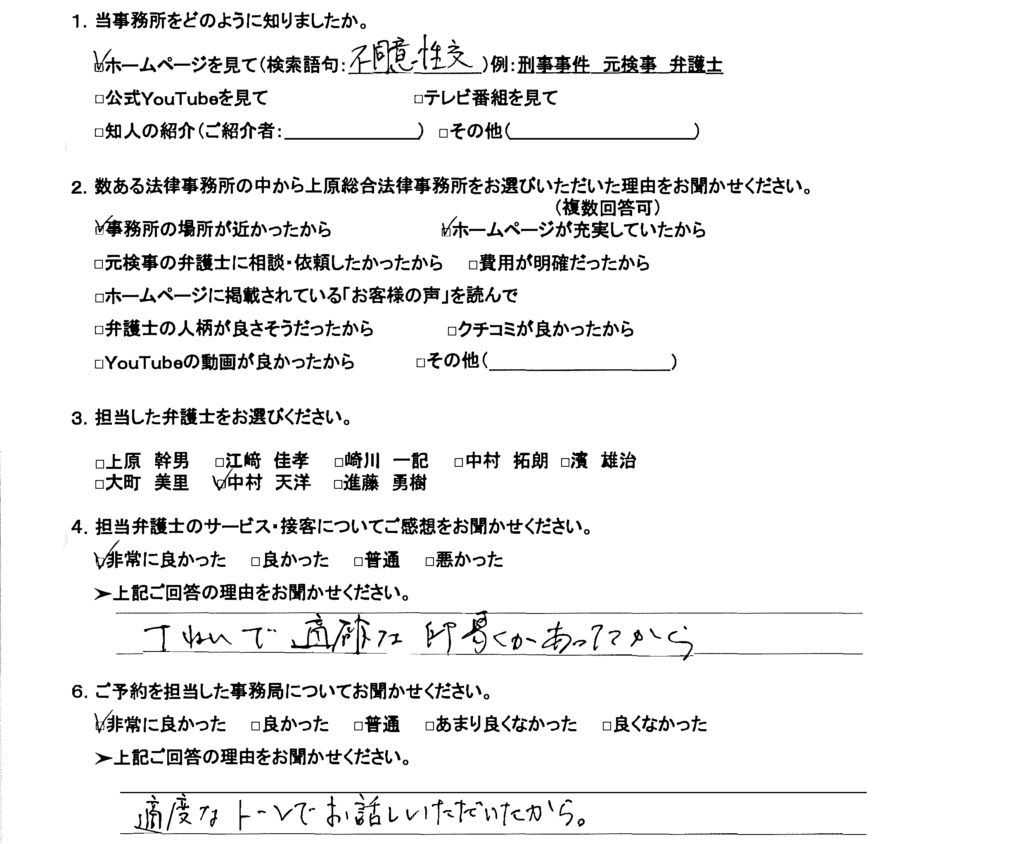 1. 当事務所をどのように知りましたか。
☑ホームページを見て(検索語句: 不同意性交 )例:刑事事件 元検事 弁護士
□公式YouTubeを見て □テレビ番組を見て
□知人の紹介(ご紹介者: ) □その他( )
2. 数ある法律事務所の中から上原総合法律事務所をお選びいただいた理由をお聞かせください。
(複数回答可)
☑事務所の場所が近かったから ☑ホームページが充実していたから
□元検事の弁護士に相談・依頼したかったから □費用が明確だったから
□ホームページに掲載されている「お客様の声」を読んで
□弁護士の人柄が良さそうだったから □クチコミが良かったから
□YouTubeの動画が良かったから □その他( )
3. 担当した弁護士をお選びください。
□上原 幹男 □江﨑 佳孝 □崎川 一記 □中村 拓朗 □濱 雄治
□大町 美里 ☑中村 天洋 □進藤 勇樹
4. 担当弁護士のサービス・接客についてご感想をお聞かせください。
☑非常に良かった □良かった □普通 □悪かった
➢上記ご回答の理由をお聞かせください。
ていねいで適確な があってから
6. ご予約を担当した事務局についてお聞かせください。
☑非常に良かった □良かった □普通 □あまり良くなかった □良くなかった
➢上記ご回答の理由をお聞かせください。
適度なトーンでお話しいただいたから。